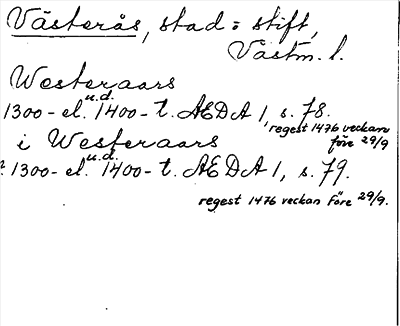 Västerås, stad o stift,
Västm. l.
Westeraars
u.d.
1300- el. 1400- t. AEDA 1, s. 78.
regest 1476 veckan
före 29/9
i Westeraars
u.d.
1300- el. 1400- t. AEDA 1, s. 79.
regest 1476 veckan före 29/9.